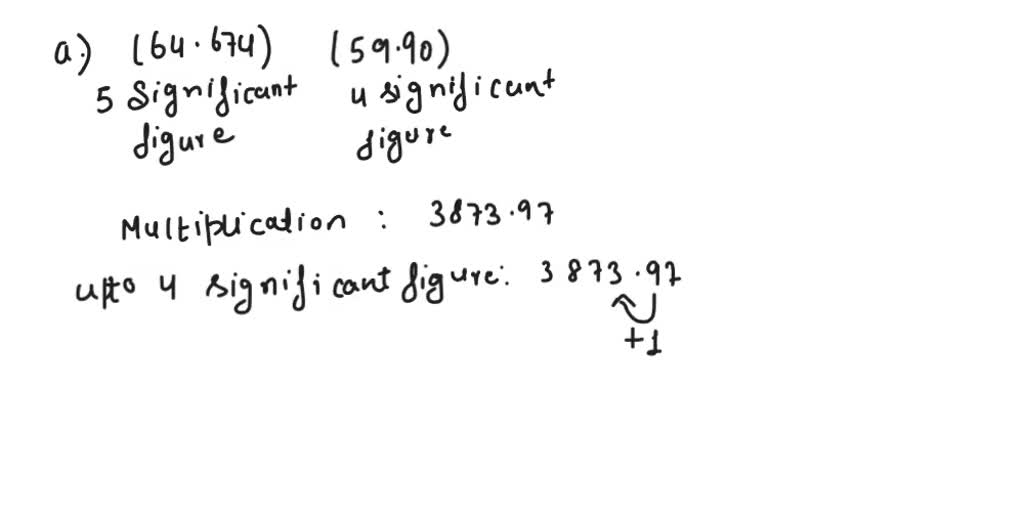 a.) (64.674) (59.90)
5 Significant 4 significant
figure figure
Multiplication : 3873.97
upto 4 significant figure: 3873.97
+1